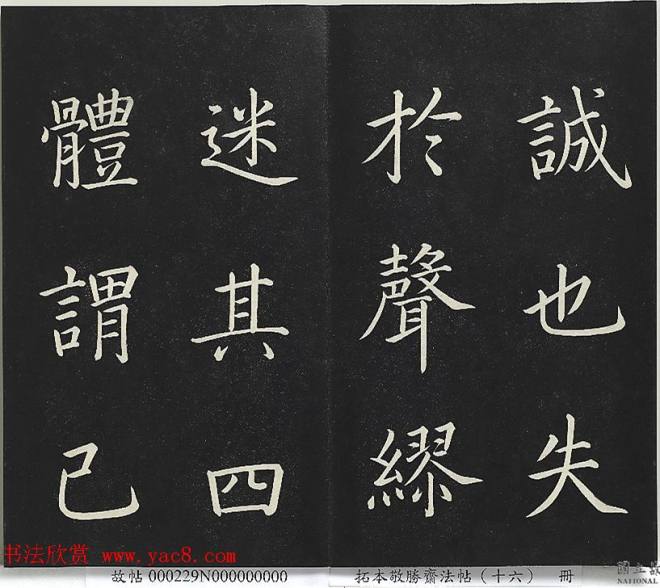 誠也失
於聲繆
迷其四
體謂己
书法欣赏 www.yac8.com
故帖 000229N000000000
拓本敬勝齋法帖（十六） 冊
國立
NATIONAL